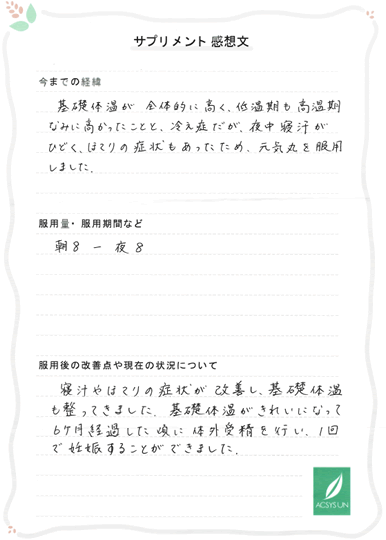 サプリメント 感想文
今までの経緯
基礎体温が 全体的に高く、低温期も高温期
なみに高かったことと、冷え症だが、夜中寝汗が
ひどく、ほてりの症状もあったため、元気丸を服用
しました。
服用量・服用期間など
朝8 － 夜8
服用後の改善点や現在の状況について
寝汗やほてりの症状が改善し、基礎体温
も整ってきました。基礎体温がきれいになって
6ケ月経過した頃に体外受精を行い、1回
で妊娠することができました。
ACSYSUN